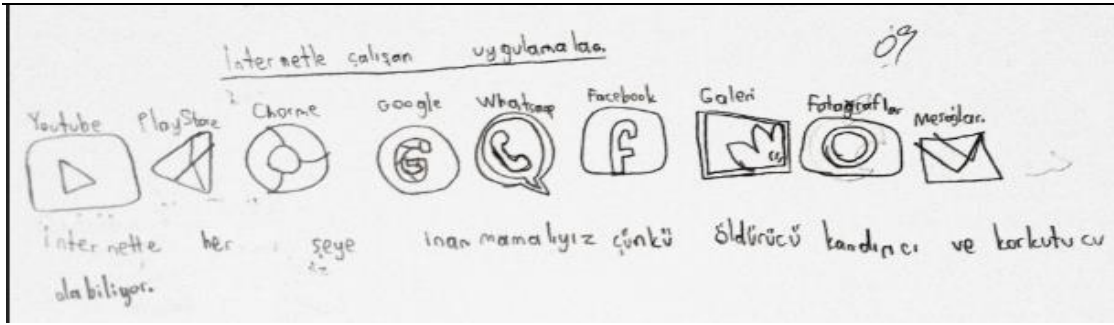 Ö9
İnternetle çalışan uygulamalar.
Youtube PlayStore Chorme Google Whatsapp Facebook Galeri Fotoğraflar Mesajlar.
İnternette her şeye inanmamalıyız çünkü öldürücü kandırıcı ve korkutucu
olabiliyor.